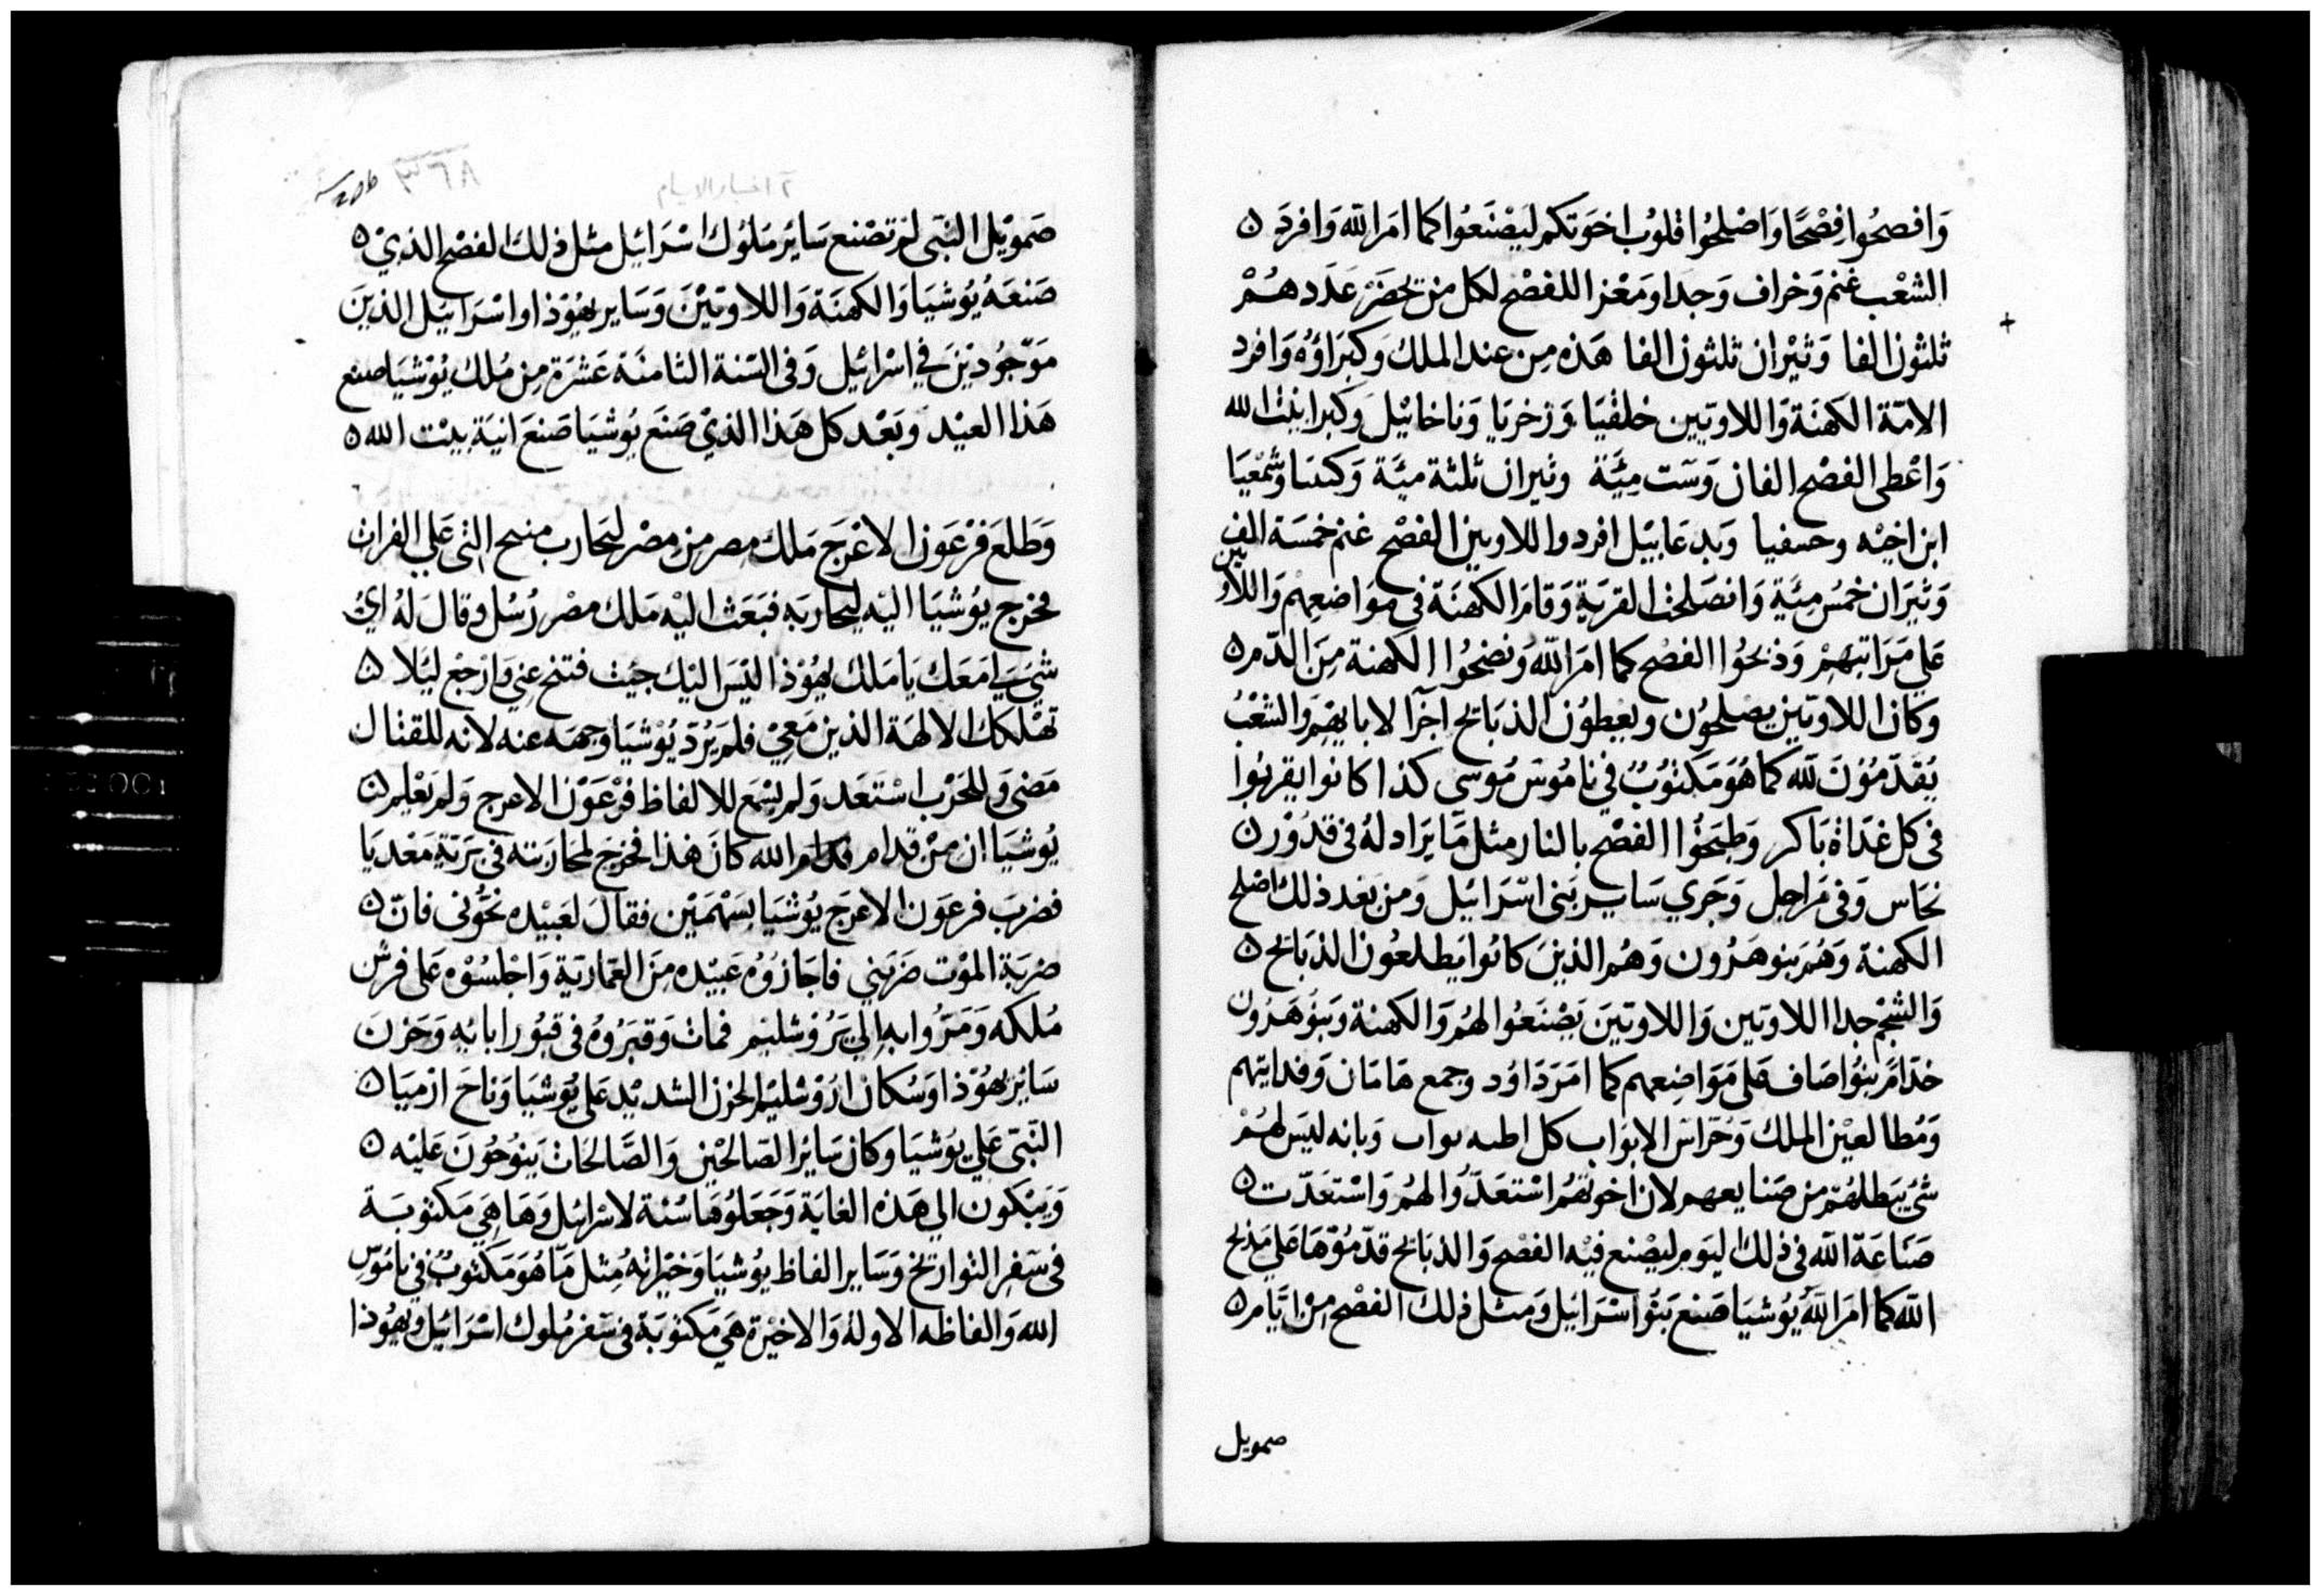 وَافصحُوا فِصْحًا وَاصْلحُوا قلُوب اخوَتكم ليَصْنَعُوا كما امَر الله وَافردَ ۝
الشعْب غنم وَخراف وَجدا ومَعْز اللفصْح لكل من يحضَر عَدَدهُمْ
ثلثون الفا وَثيْران ثلثون الفا هَذه مِن عند الملك وَكبرَاؤه وَافرد
الامّة الكهنَة وَاللاويّين خلقيَا وَزخريَا وَناخائيْل وكبرا بيْت الله
وَاعْطى الفصْح الفان وَست مِيَّة وثيران ثلثة ميَّة وَكننا وشمْعيَا
ابن اخيْه وحسفيا وَيدعَابيْل افردوا اللاويين الفصْح غنم خمسَة الف
وَثيرَان خمْس مِيَّة وَانصَلحت القربَة وَقامَ الكهنَة في موَاضعِهمْ وَاللاويّين
عَلي مَرَاتبهِمْ وَذبحُوا الفصْح كما امَر الله وَنضحُوا الكهنة مِنَ الدّم ۝
وَكان اللاويّين يصْلحوُن ويعطوُن الذبَائح اجرًا لابايهمْ وَالشعْبُ
يُقدّموُنَ لله كما هُوَ مَكتوُبٌ في نامُوسْ مُوسى كذا كانوا يقربُوا
في كل غدَاة بَاكر وَطبَخُوا الفصْح بالنار مثل مَا يرَاد لهُ في قدُوْر ۝
نحَاس وَفى مَراجل وَجَري سَاير بَنى اسْرَائيل وَمن بَعْد ذلك اصْلح
الكهنة وَهُم بَنو هَرُون وَهُم الذينَ كانوُا يَطلعُون الذبَائح ۝
وَالشحْم جدا اللاويّين وَاللاويّينَ يَصْنعَوا لهُم وَالكهنة وَبنوُ هَرُون
خدّام بنوُ اصَاف عَلى مَوَاضِعهم كما امَرَ دَاوُد وجمع هَامَان وَفدايتهم
وَمُطالعيْن الملك وَحُرّاس الابوَاب كل اطبه بواب وَبانه ليَس لهمْ
شئ يَبطلهُم من صَنايعهم لان اخوتهُم اسْتعَدّوُا لهُم وَاسْتعَدّت ۝
صَنَاعَة الله في ذلك ليَوم ليصْنع فيْه الفصْح وَالذبَائح قدّموُهَا عَلي مَذبَح
الله كما امَر اللهُ يُوشيَا صَنع بَنوُ اسْرَائيل وَمثل ذلك الفصْح مِنْ ايَّام ۝
صمويل
٢ اخبار الايام
٨٣٦
صَمويْل النبّى لم تصْنع سَائر مَلوُك اسْرَائيل مثل ذلك الفصْح الذيْ ۝
صَنعَهُ يُوشيَا وَالكهنَة وَاللاويّيْنَ وَسَاير يهُوْذا وَاسْرَائيَل الذينَ
مَوّجُوديْنَ في اسْرائيل وَفى السّنة الثامنَة عَشرَة مِن مُلك يُوْشيَا صنع
هَذا العيْد وَبَعْد كل هَذا الذيْ صَنعَ يُوشيَا صَنعَ انيَة بيْت الله ۝
وَطلَعَ فرْعَون الاعْرَج مَلك مصر مِن مِصْر ليَحَارب منبح التى عَلي الفرات
فخرج يُوشيَا اليْه ليحاربَه فبَعَث اليْه مَلك مصْر رُسُل وقال لهُ ايُ
شئ لي مَعَك يَا مَلك يهُوْذا اليْسَ اليْك جيْت فتنح عنى وَارْجعْ ليَلا ۝
تهْلكك الالهَة الذين مَعيْ فلم يَرُدّ يُوْشيَا وَجهَه عنه لانه للقتال
مَضى وَللحَرْب اسْتعَد وَلم يسْمَع للالفاظ فرْعَوْن الاعرج وَلم يَعْلم ۝
يُوشيَا ان من قدام الله كانَ هَذا فخرَج لمحاربته في بَرّيّة مَعْديَا
فضربَ فرعَون الاعرَج يُوشيَا بسَهْمَيْن فقالَ لعَبيْده نحُّونى فانّ ۝
ضرْبَة الموْت ضرَبني فاجَازُوُه عَبيْده مِنَ العَمّاريَة وَاجْلسُوْه عَلى فرش
مُلكه وَمَرّوا به الى يَرُوْشليْم فمات وَقبَرُوهُ في قبوُر ابائه وَحزنَ
سَائر يهُوْذا وَسُكان ارُوْشليْم الحزن الشديْد عَلى يُوشيَا وَناحَ ارْميَا ۝
النبّى عَلي يوُشيَا وكان سَائر الصَالحيْن وَالصَّالحَات يَنوُحُونَ عَليْه ۝
وَيَبْكون الي هَذه الغايَة وَجَعَلوُهَا سُنة لاسْرائيل وَهَا هَي مَكتوبَة
في سَفر التوارَيْخ وَسَاير الفاظ يوُشيَا وَخيْراتهُ مِثل مَا هُوَ مَكتوُبٌ في نامُوّس
الله وَالفاظه الاولة وَالاخيْرة هَي مَكتوُبَة في سَفر مُلوك اسْرَائيل وَيهُوذا